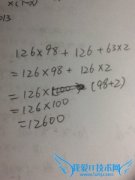 126×98 + 126 + 63×2
=126×98 + 126×2
=126× (98+2)
=126×100
=12600
我爱IT技术网